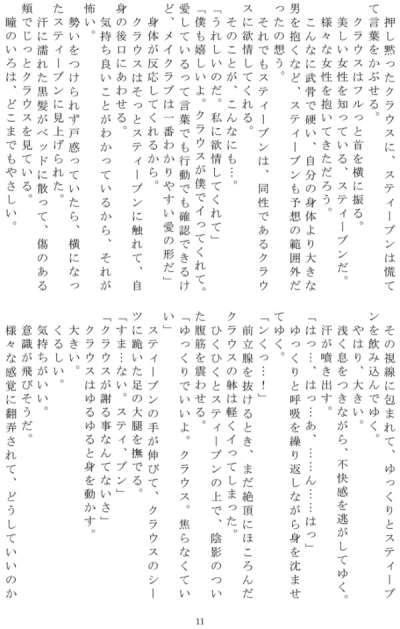 押し黙ったクラウスに、スティーブンは慌て
て言葉をかぶせる。
クラウスはフルっと首を横に振る。
美しい女性を知っている、スティーブンだ。
様々な女性を抱いてきただろう。
こんなに武骨で硬い、自分の身体より大きな
男を抱くなど、スティーブンも予想の範囲外だ
ったの想う。
それでもスティーブンは、同性であるクラウ
スに欲情してくれる。
そのことが、こんなにも…。
「うれしいのだ。私に欲情してくれて」
「僕も嬉しいよ。クラウスが僕でイってくれて。
愛しているって言葉でも行動でも確認できるけ
ど、メイクラブは一番わかりやすい愛の形だ」
身体が反応してくれるから。
クラウスはそっとスティーブンに触れて、自
身の後口にあわせる。
気持ち良いことがわかっているから、それが
怖い。
勢いをつけられず戸惑っていたら、横になっ
たスティーブンに見上げられた。
汗に濡れた黒髪がベッドに散って、傷のある
頬でじっとクラウスを見ている。
瞳のいろは、どこまでもやさしい。
その視線に包まれて、ゆっくりとスティーブ
ンを飲み込んでゆく。
やはり、大きい。
浅く息をつきながら、不快感を逃がしてゆく。
汗が噴き出す。
「はっ…、はっ…あ、……ん……はっ」
ゆっくりと呼吸を繰り返しながら身を沈ませ
てゆく。
「ンくっ…！」
前立腺を抜けるとき、まだ絶頂にほころんだ
クラウスの躰は軽くイってしまった。
ひくひくとスティーブンの上で、陰影のつい
た腹筋を震わせる。
「ゆっくりでいいよ。クラウス。焦らなくてい
い」
スティーブンの手が伸びて、クラウスのシー
ツに跪いた足の大腿を撫でる。
「すま…ない。スティ、ブン」
「クラウスが謝る事なんてないさ」
クラウスはゆるゆると身を動かす。
大きい。
くるしい。
気持ちがいい。
意識が飛びそうだ。
様々な感覚に翻弄されて、どうしていいのか
11